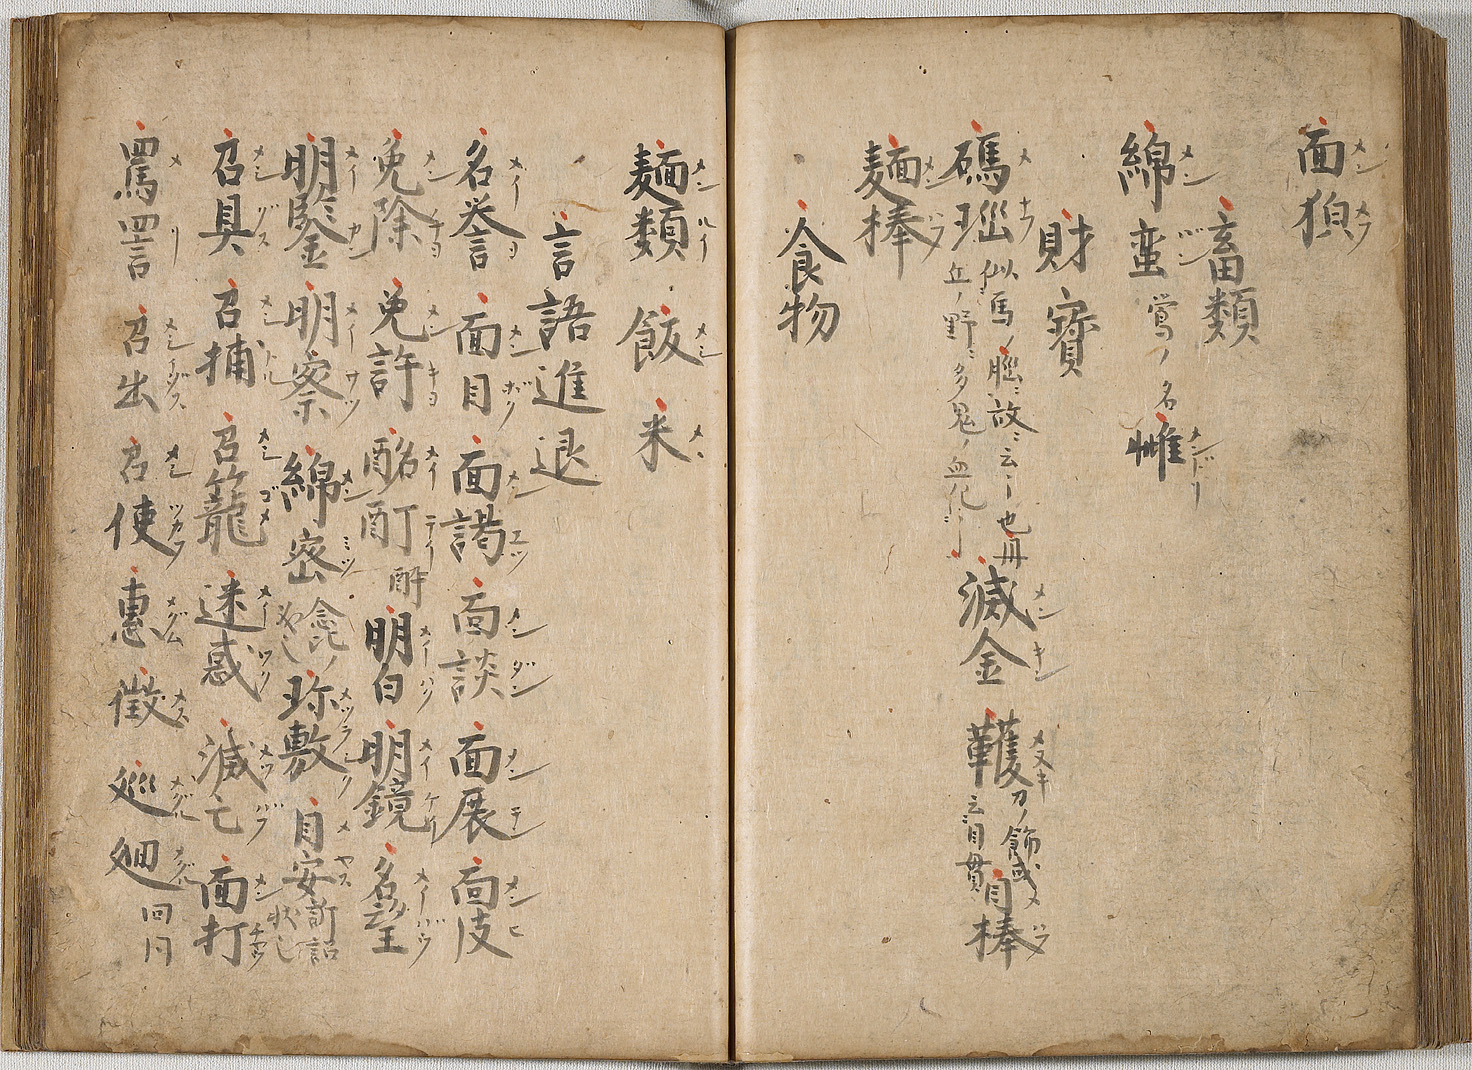 面㹨 メンカフ
畜類
綿蛮 メンバン 鶯ノ名 雌 メンドリ
財寳
碼碯 メナフ 似馬ノ脳ニ故ニ云ー也 丘ノ野ニ多鬼ノ血化 滅金 メンキン 刀ノ飾或 云目貫 目棒
麺棒 メンバフ
食物
麺類 メンルイ 飯 メシ 米 メ
言語進退
名誉 メイヨ 面目 メンボク 面謁 メンエツ 面談 メンダン 面展 メンテン 面皮 メンヒ
免除 メンヂヨ 免許 メンキヨ 酩酊 メイテイ 酔 明白 メイハク 明鏡 メイケイ 名望 メイバウ
明鑒 メイカン 明察 メイサツ 綿密 メンミツ 珎敷 メヅラシク 目安 メヤス 訴詔状也
召具 メシグス 召捕 メシトル 召籠 メシコメ 迷惑 メイワク 滅亡 メツバフ 面打 メンチヤウ
罵詈 メリ 召出 メシイダス 召使 メシツカフ 惠 メグム 徴 メス 巡 メグル 廻 メグル 回同